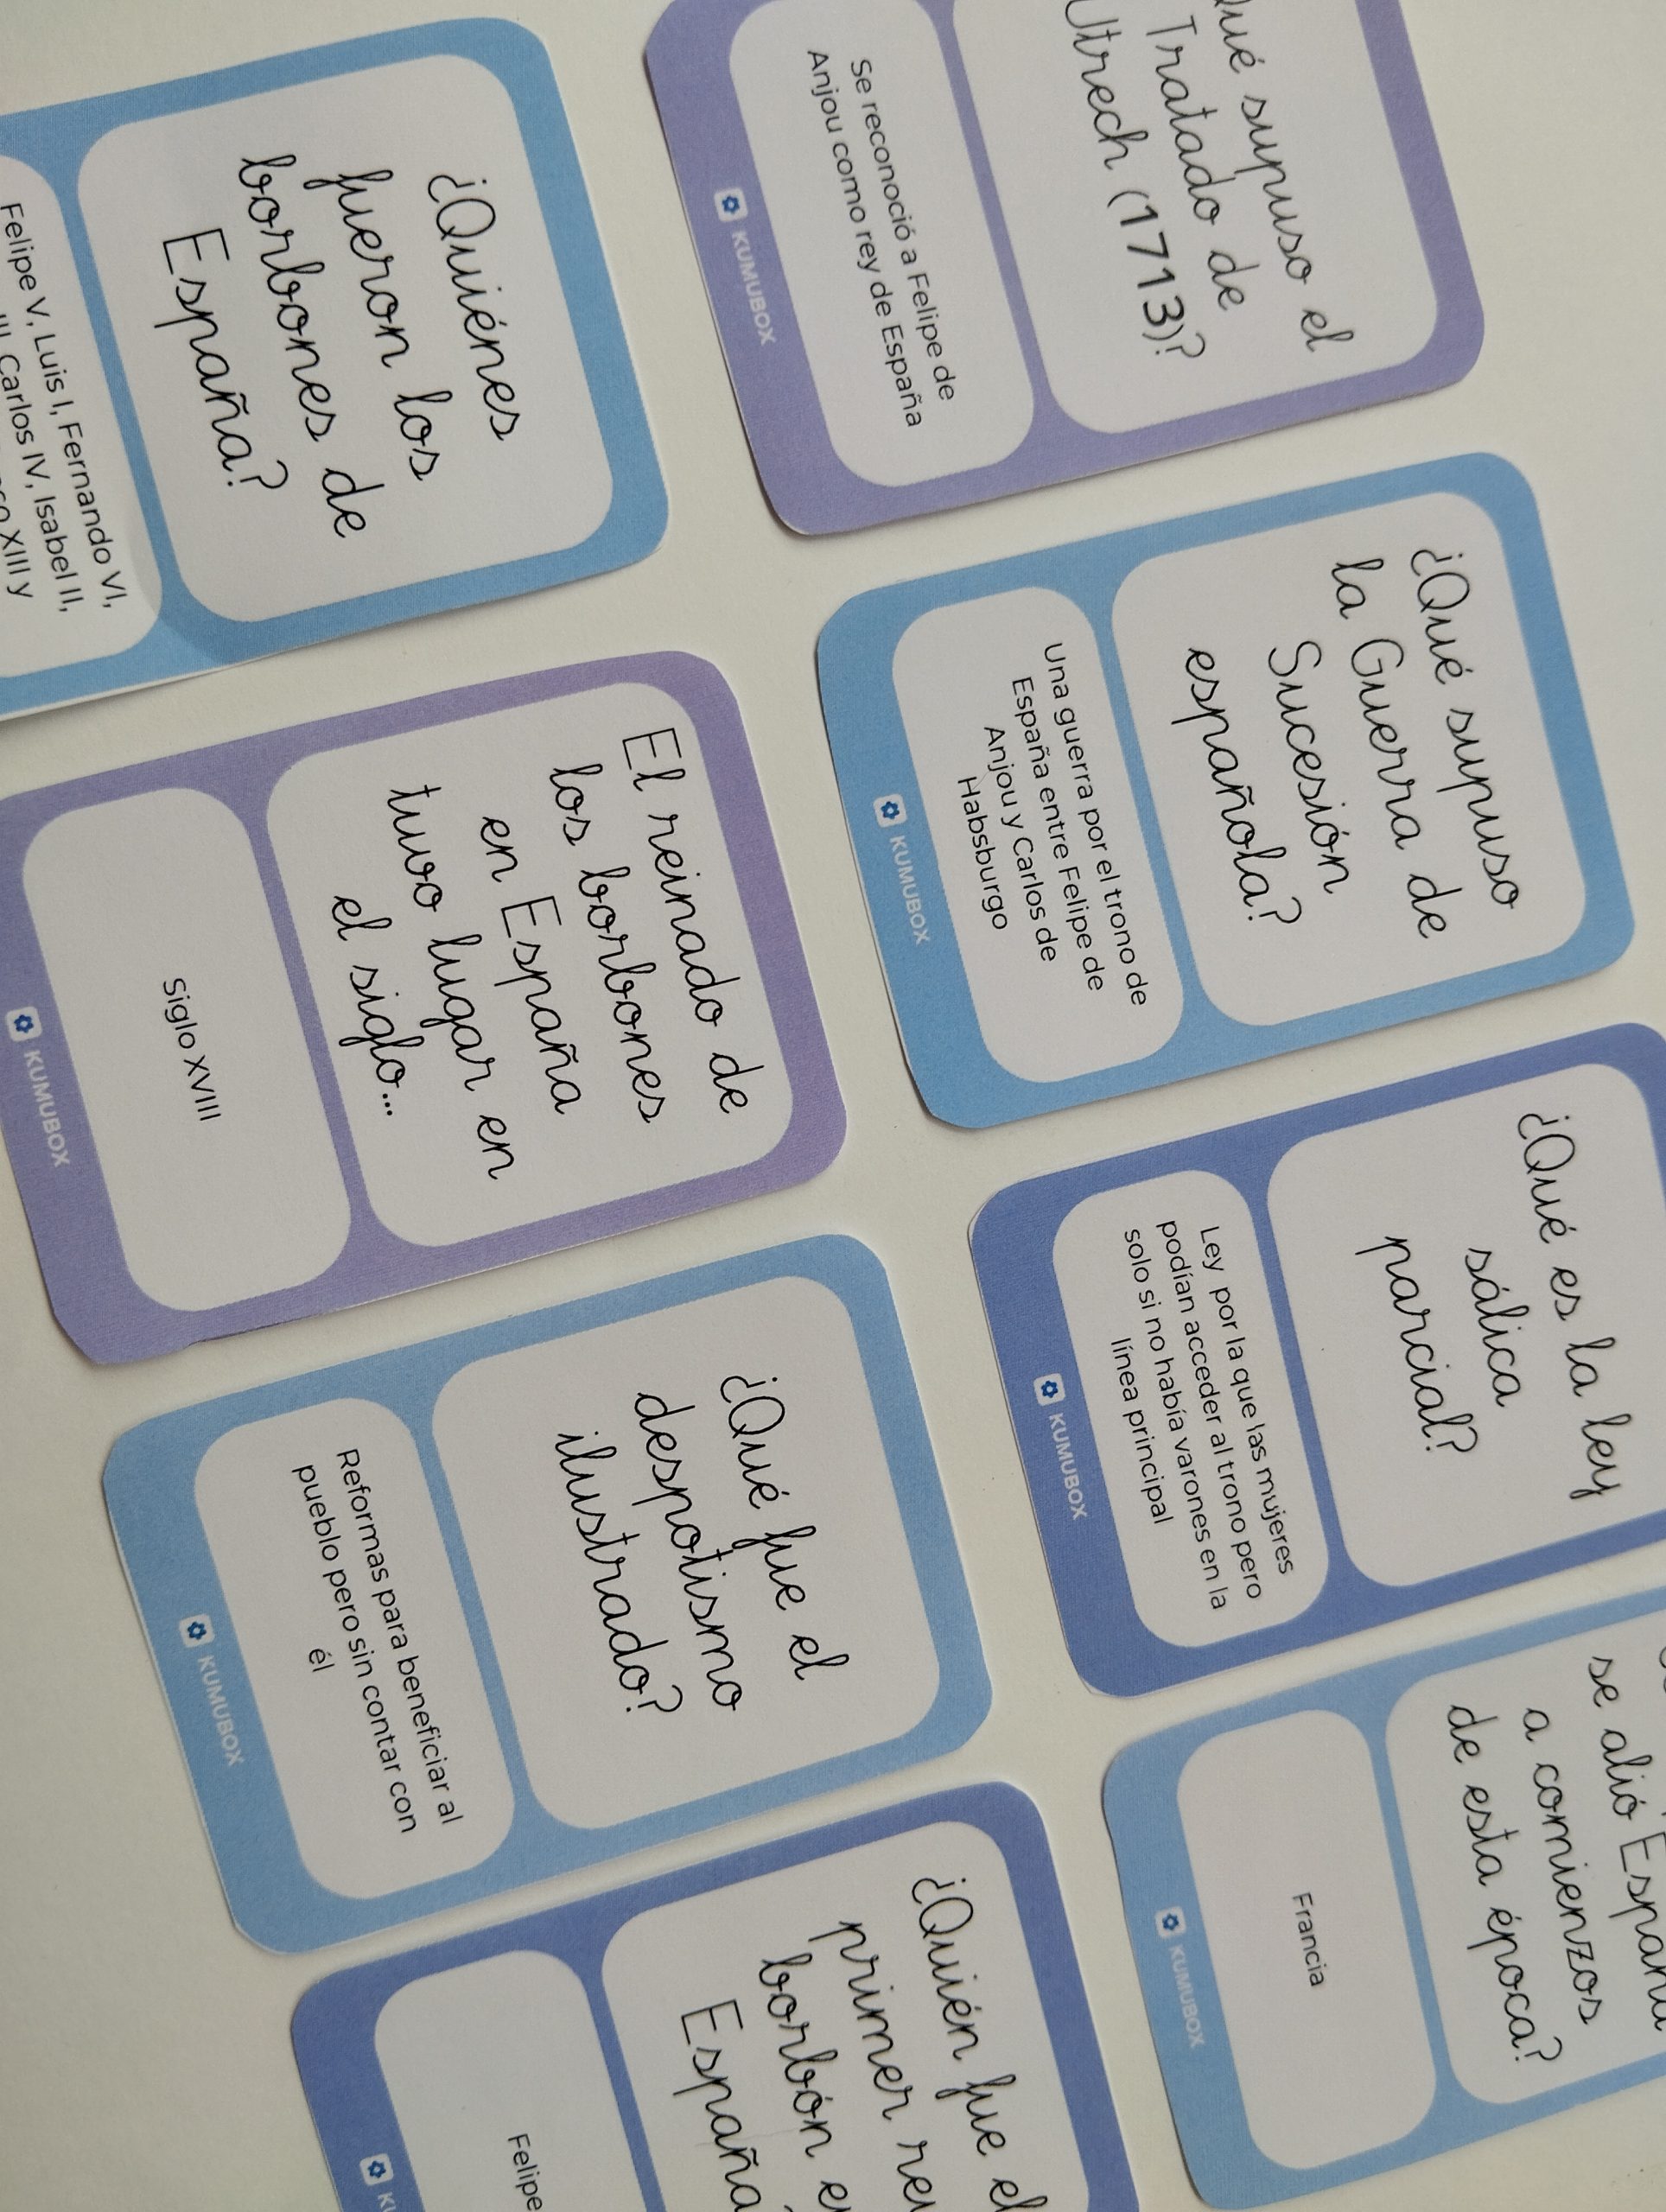 ¿Quiénes
fueron los
borbones de
España?
Felipe V, Luis I, Fernando VI,
III, Carlos IV, Isabel II,
XIII y
supuso el
Tratado de
Utrech (1713)?
Se reconoció a Felipe de
Anjou como rey de España
KUMUBOX
El reinado de
los borbones
en España
tuvo lugar en
el siglo...
Siglo XVIII
KUMUBOX
¿Qué supuso
la Guerra de
Sucesión
española?
Una guerra por el trono de
España entre Felipe de
Anjou y Carlos de
Habsburgo
KUMUBOX
¿Qué fue el
despotismo
ilustrado?
Reformas para beneficiar al
pueblo pero sin contar con
él
KUMUBOX
¿Qué es la ley
sálica
parcial?
Ley por la que las mujeres
podían acceder al trono pero
solo si no había varones en la
línea principal
KUMUBOX
¿Quién fue el
primer
borbón
España
Felipe
se alió
a comienzos
de esta época?
Francia
KUMUBOX